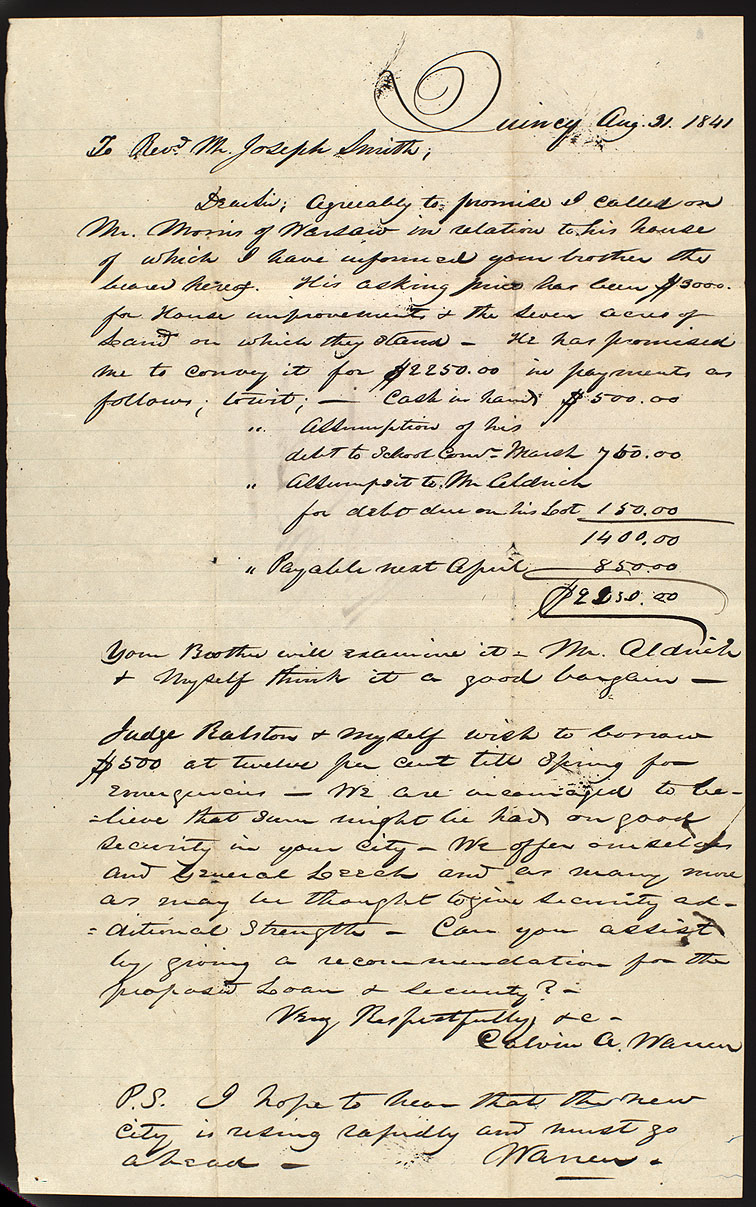 Quincy Aug. 31. 1841
To Revd. Mr. Joseph Smith;
Dear Sir; Agreeably to promise I called on
Mr. Morris of Warsaw in relation to his house
of which I have informed your brother the
bearer hereof. His asking price has been $3000.
for House improvements & the seven acres of
Land on which they stand – He has promised
me to convey it for $2250.00 in payments as
follows; towit; — Cash in hand $500.00
" Assumption of his
debt to School Comr. Marsh 750.00
" Assumpsit to Mr Aldrich
for debt due on his Lot 150.00
1400.00
" Payable next April 850.00
$2250.00
Your Brother will examine it – Mr. Aldrich
& Myself think it a good bargain —
Judge Ralston & myself wish to borrow
$500 at twelve per cent till Spring for
emergencies — We are incouraged to be-
-lieve that sum might be had on good
security in your city – We offer ourselves
and General Leech and as many more
as may be thought to give security ad-
-ditional Strength – Can you assist
by giving a recommendation for the
proposed Loan & security? –
Very Respectfully &c –
Calvin A. Warren
P.S. I hope to hear that the new
city is rising rapidly and must go
ahead — Warren.